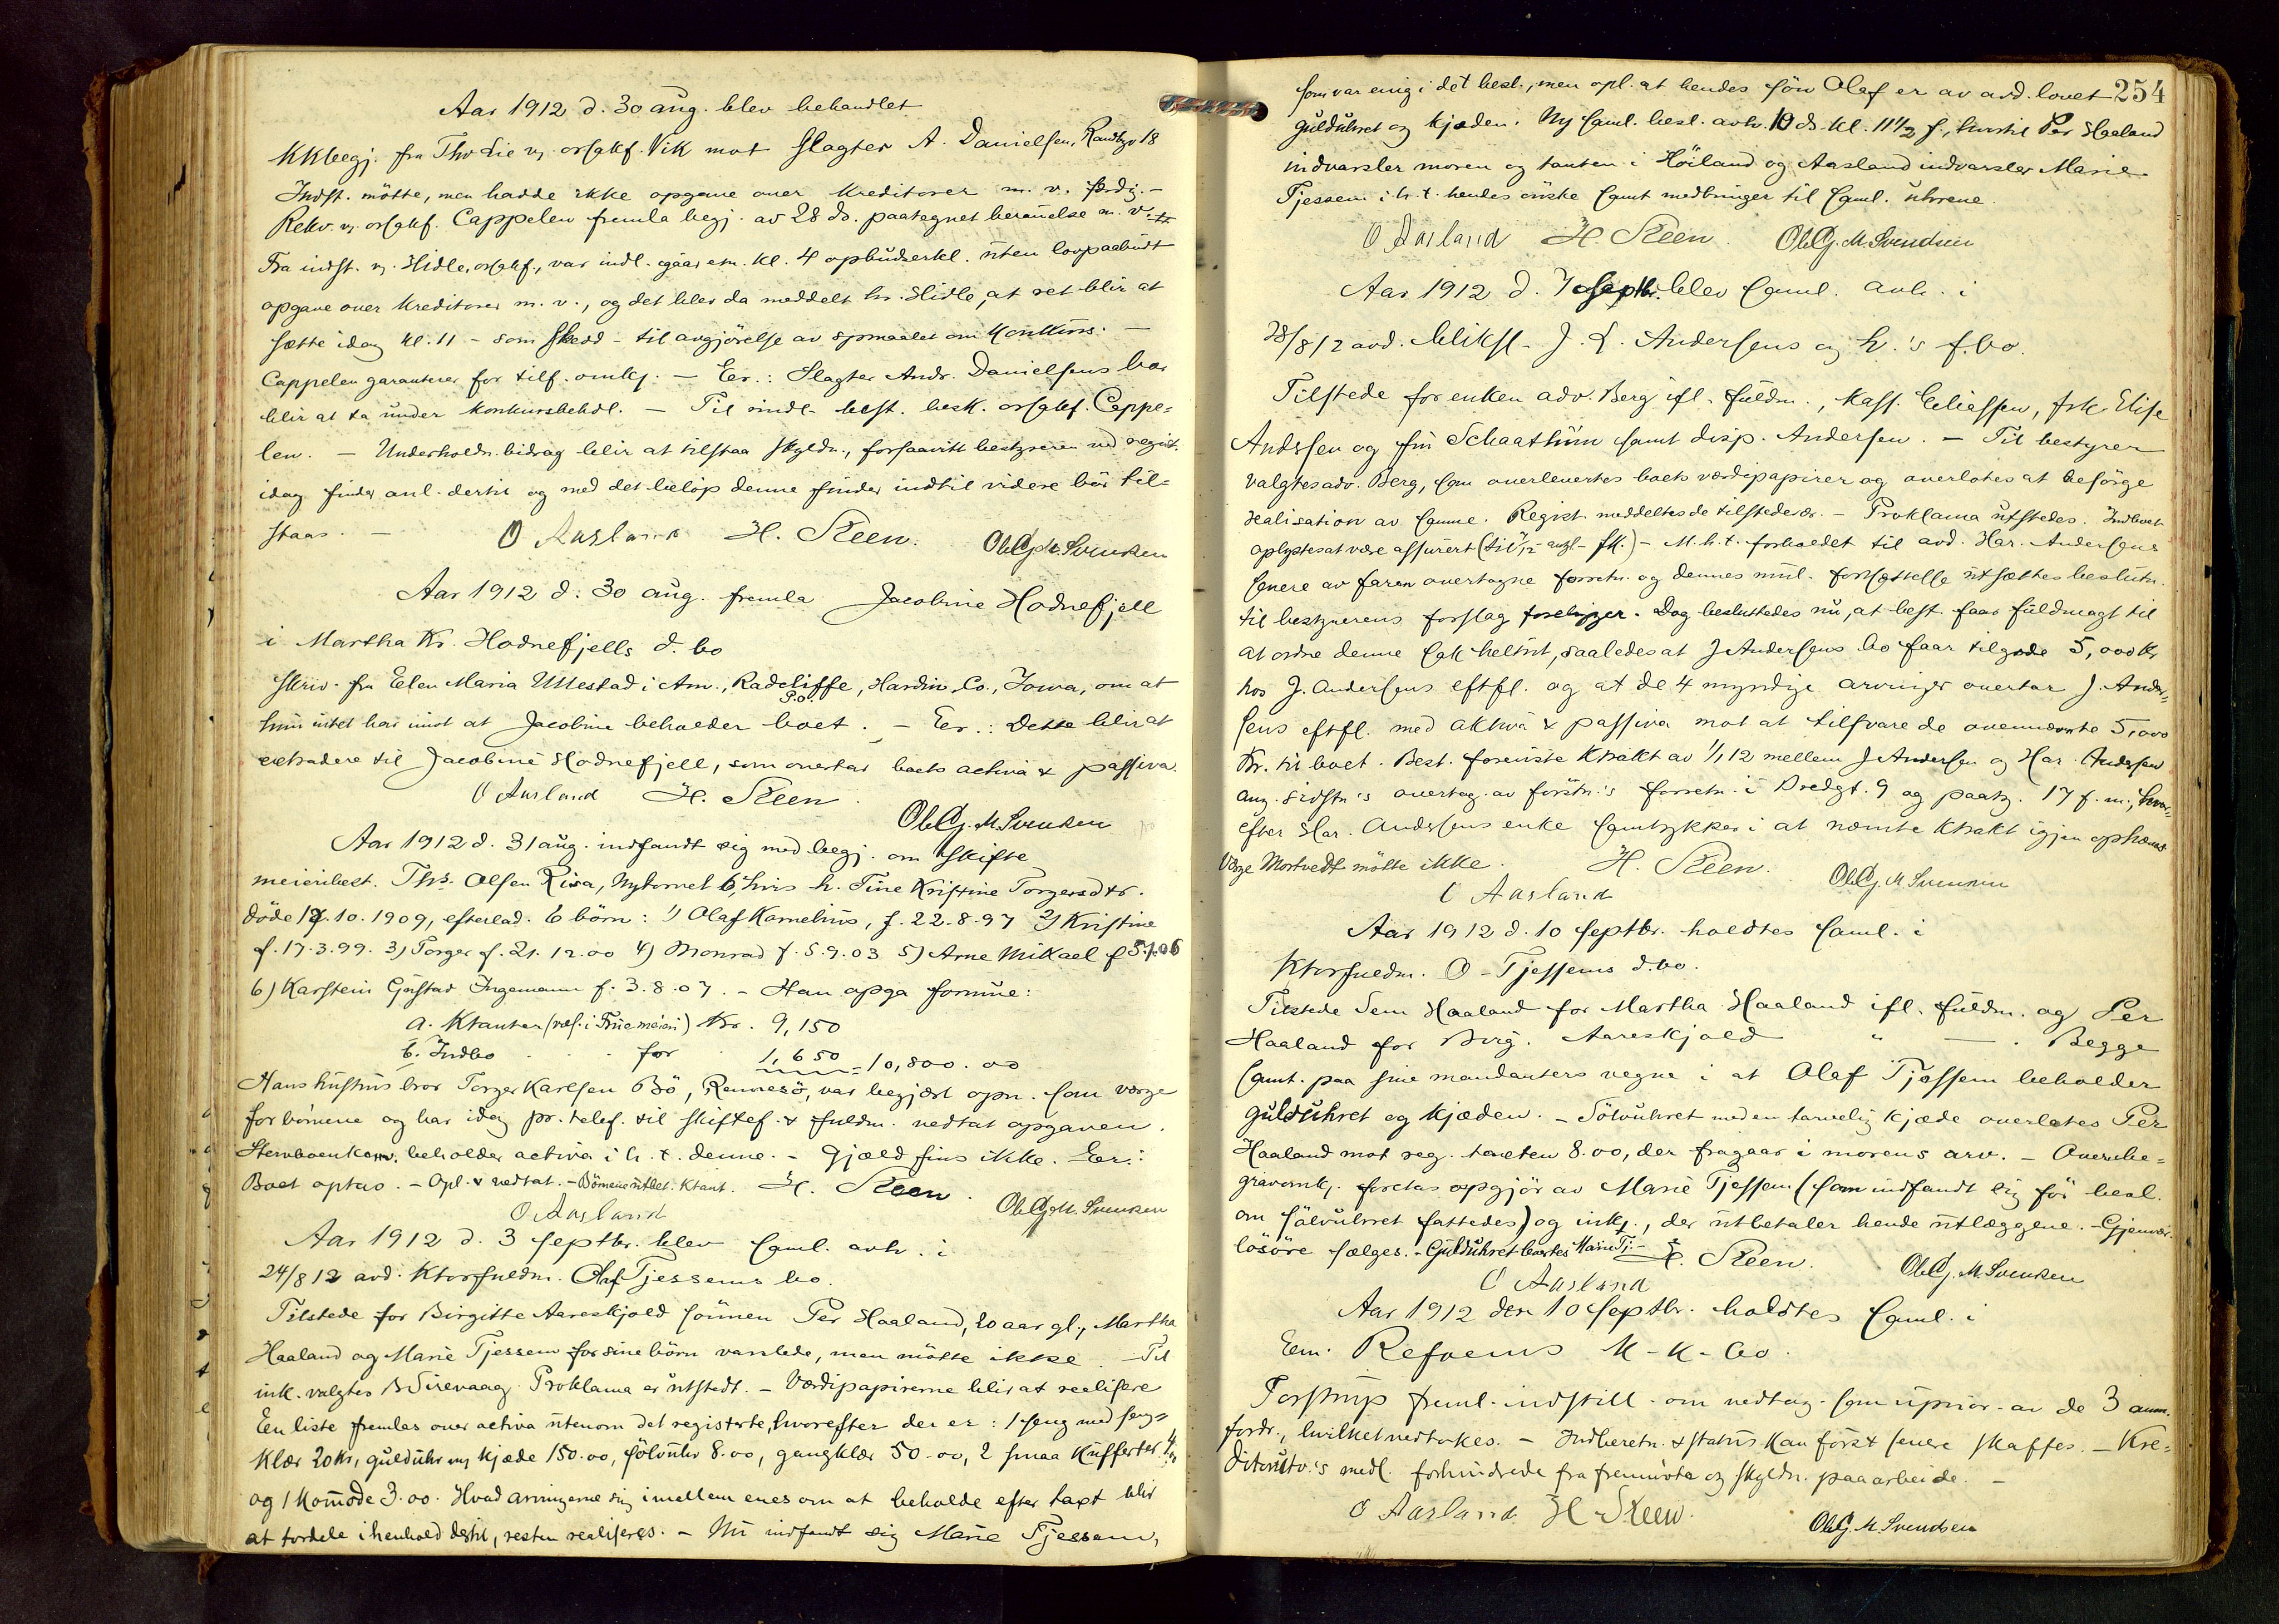 Aar 1912 d. 30 aug. blev behandlet
KKbegj. fra Thv Lie v. orsakf. Vik mot slagter A. Danielsen, Randbgv 18
Indst. mötte, men hadde ikke opgave over kreditorer m. v. færdig. -
Rekv. v. orsakf. Cappelen fremla begj. av 28 ds. paategnet berammelse m. v.
Fra indst. v. Hidle, orsakf., var indl. igaar em. kl. 4 opbudserkl. uten lovpaabudt
opgave over kreditorer m. v., og det blev da meddelt hr. Hidle, at ret blir at
sætte idag kl. 11 - som skedd - til avgjörelse av spmaalet om Konkurs. -
Cappelen garanterer for tilf. omkj. - Eer.: Slagter Andr. Danielsens bo
blir at ta under Konkursbehdl. - Til midl. best. besk. orsakf. Cappe=
len. - Underholdn. bidrag blir at tilstaa skyldn., forsaavitt bestyreren ved regist.
idag finder anl. dertil og med det belöp denne finder indtil videre bör til=
staas. - O Aasland H. Steen. Ole Gj. M. Svendsen
Aar 1912 d. 30 aug. fremla Jacobine Hodnefjell
i Martha Kr. Hodnefjells d. bo
skriv. fra Elen Maria Ullestad i Am., Radcliffe, P.o. Hardin Co., Jowa, om at
hun intet har imot at Jacobine beholder boet. - Eer.: Dette blir at
extradere til Jacobine Hodnefjell, som overtar boets activa & passiva.
O Aasland H. Steen. Ole Gj. M. Svendsen
Aar 1912 d. 31 aug. indfandt sig med begj. om skifte
meieribest. Ths. Olsen Risa, Nytorvet 6, hvis h. Tine Kristine Torgersdtr.
döde 17.10.1909, efterlad. 6 börn: 1) Olaf Kornelius, f. 22.8.97 2) Kristine
f. 17.3.99. 3) Torger f. 21.12.00 4) Monrad f. 5.9.03 5) Arne Mikael f 5.1.06
6) Karstein Gustad Ingemann f. 3.8.07. - Han opga formue:
a. Ktanter (væs. i Frue meieri) Kr. 9,150
b. Indbo . . . for . 1,650 = 10,800.00
Hans hustrus bror Torger Karlsen Bö, Rennesö, var begjært opn. som værge
for börnene og har idag pr. telef. til skiftef. & fuldm. vedtat opgaven.
Stervboenkem. beholder activa i h. t. denne. - Gjæld fins ikke. Eer.:
Boet optas. - Opl. & vedtat. - Börnene utbet. Ktant. H. Steen.
O Aasland Ole Gj. M. Svendsen
Aar 1912 d. 3 septbr. blev saml. avh. i
24/8 12 avd. Ktorfuldm. Olaf Tjessems bo.
Tilstede for Birgitte Aareskjold sönnen Per Haaland, 20 aar gl., Martha
Haaland og Marie Tjessem for sine börn varslede, men mötte ikke. - Til
ink. valgtes B Sirevaag. Proklama er utstedt. - Værdipapirerne blir at realisere
En liste fremlaes over activa utenom det registerte, hvorefter der er: 1 seng med seng=
klær 20 kr, gulduhr m kjæde 150.00, sölvuhr 8.00, gangklær 50.00, 2 smaa kufferter
og 1 Komode 3.00. Hvad arvingerne sig imellem enes om at beholde efter taxt blir
at fordele i henhold dertil, resten realiseres. - Nu indfandt sig Marie Tjessem,
254
som var enig i det besl., men opl. at hendes sön Olaf er av avd. lovet
gulduhret og kjæden. Ny saml. besl. avh. 10 ds. kl. 11 1/2 f., hvortil Per Haaland
indvarsler moren og tanten i Höiland og Aasland indvarsler Marie
Tjessem i h. t. hendes önske samt medbringer til saml. uhrene.
O Aasland H. Steen. Ole Gj. M. Svendsen
Aar 1912 d. 7 septbr. blev saml. avh. i
28/8 12 avd. bliksl. J. L. Andersens og h.'s f.bo.
Tilstede for enken adv. Berg ifl. fuldm., kass. Eeliassen, frk. Elise
Andersen og fru Schaathun samt disp. Andersen. - Til bestyrer
valgtes adv. Berg, som overlevertes boets værdipapirer og overlotes at besörge
realisation av samme. Regist. meddeltes de tilstedevær. - Proklama utstedes. Indboet
oplystes at være assurert - M. h. t. forholdet til avd. Har. Andersens
senere av faren overtagne forretn. og dennes mul. fortsættelse utsættes beslutn.
til bestyrerens forslag foreligger. Dog besluttedes nu, at best. faar fuldmagt til
at ordne denne sak helt ut, saaledes at J Andersens bo faar tilgode 5,000 kr
hos J. Andersens eftfl. og at de 4 myndige arvinger overtar J. Ander=
sens eftfl. med aktiva & passiva mot at tilsvare de ovennævnte 5,000
Kr. til boet. Best. foreviste Ktrakt av 1/1 12 mellem J Andersen og Har. Andersen
ang. sidstn.'s overtag. av förstn.'s forretn. i Bredgt. 9 og paatg. 17 f. m., hvor=
efter Har. Andersens enke samtykker i at nævnte Ktrakt igjen ophæves
Værge Mortvedt mötte ikke. H. Steen.
O Aasland Ole Gj. M Svendsen
Aar 1912 d. 10 septbr. holdtes saml. i
Ktorfuldm. O. Tjessems d.bo.
Tilstede Sem Haaland for Martha Haaland ifl. fuldm. og Per
Haaland for Birg. Aareskjold " - . Begge
samt. paa sine mandanters vegne i at Olaf Tjessem beholder
gulduhret og kjæden. - Sölvuhret med en tarvelig kjæde overlates Per
Haaland mot reg. taxten 8.00, der fragaar i morens arv. - Overube=
gravomk. foretas opgjör av Marie Tjessem (som indfandt sig för besl.
om sölvuhret fattedes) og ink., der utbetaler hende utlæggene. - Gjenvær.
lösöre sælges. - Gulduhret levertes Marie Tj. - H. Steen.
O Aasland Ole Gj. M. Svendsen
Aar 1912 den 10 septbr. holdtes saml. i
Eem. Refvems K-K-bo.
Torstrup freml. indstill. om vedtag. som uprior. av de 3 anm.
fordr., hvilket vedtokes. - Indberetn. & status kan först senere skaffes. - Kre=
ditorutv.'s medl. forhindrede fra fremmöte og skyldn. paa arbeide. -
O Aasland H Steen. Ole Gj. M. Svendsen